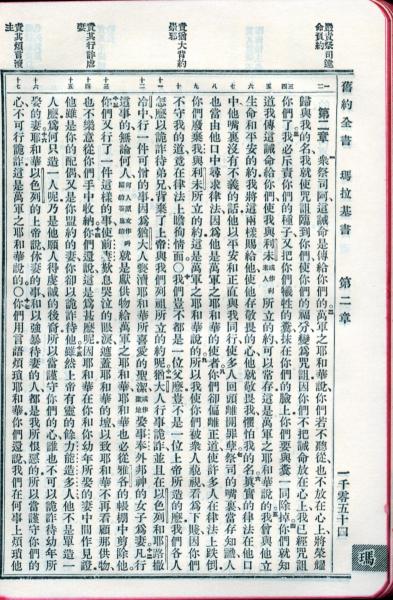 舊約全書 瑪拉基書 第二章 一千零五十四
瑪
嚴責祭司違
命負約
責猶大背約
崇邪
責其行詐虐
妻
責其煩言瀆
主
第二章 衆祭司阿這誡命是傳給你們的萬軍之耶和華說你們若不聽從也不放在心上將榮耀
歸與我的名我就使咒詛臨到你們使你們的福分變爲咒詛因你們不把誡命放在心上我已經咒詛
你們了我必斥責你們的種子又把你們犧牲的糞抹在你們的臉上你們要與糞一同除掉你們就知
道我傳這誡命給你們使我與利未或作利未人所立的約可以常存這是萬軍之耶和華說的我曾與他立
生命和平安的約我將這兩樣賜給他使他存敬畏的心他就敬畏我懼怕我的名眞實的律法在他口
中他嘴裏沒有不義的話他以平安和正直與我同行使多人回頭離開罪孽祭司的嘴裏當存知識人
也當由他口中尋求律法因爲他是萬軍之耶和華的使者你們卻偏離正道使許多人在律法上跌倒
你們廢棄我與利未所立的約這是萬軍之耶和華說的所以我使你們被衆人藐視看爲下賤因你們
不守我的道竟在律法上瞻徇情面○我們豈不都是一位父麼豈不是一位上帝所造的麼我們各人
怎麼以詭詐待弟兄背棄了上帝與我們列祖所立的約呢猶大人行事詭詐並且在以色列和耶路撒
冷中行一件可憎的事因爲猶大人褻瀆耶和華所喜愛的聖潔或作聖地娶事奉外邦神的女子爲妻凡行
這事的無論何人何人原文作叫醒的答應的就是獻供物給萬軍之耶和華耶和華也必從雅各的帳棚中剪除他
你們又行了一件這樣的事使前妻歎息哭泣的眼淚遮蓋耶和華的壇以致耶和華不再看顧那供物
也不樂意從你們手中收納你們還說這是爲甚麼呢因耶和華在你和你幼年所娶的妻中間作見證
他雖是你的配偶又是你盟約的妻你卻以詭詐待他雖然上帝有靈的餘力能造多人他不是單造一
人麼爲何只造一人呢乃是他願人得虔誠的後裔所以當謹守你們的心誰也不可以詭詐待幼年所
娶的妻耶和華以色列的上帝說休妻的事和以強暴待妻的人都是我所恨惡的所以當謹守你們的
心不可行詭詐這是萬軍之耶和華說的○你們用言語煩瑣耶和華你們還說我們在何事上煩瑣他